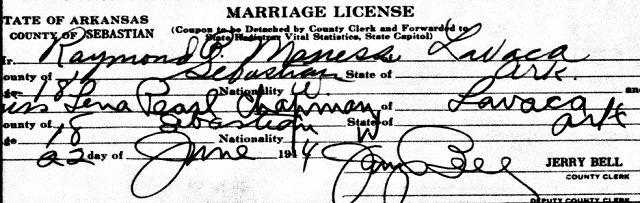 MARRIAGE LICENSE
STATE OF ARKANSAS
COUNTY OF SEBASTIAN
(Coupon to be Detached by County Clerk and Forwarded to
State Registrar Vital Statistics, State Capitol)
r. Raymond Maness of Lavaca
ounty of Sebastian State of Ark.
ge 18 Nationality W. and
iss Lena Pearl Chapman of Lavaca
ounty of Sebastian State of Ark
ge 18 Nationality W
22 day of June 19 4
Jerry Bell
JERRY BELL
COUNTY CLERK
DEPUTY COUNTY CLERK